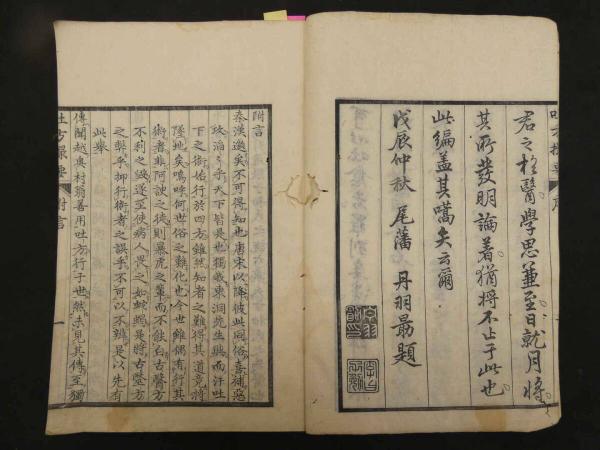 君之於醫學思兼至日就月將
其所發明論著猶將不止于此也
此編蓋其嚆矢云爾
戊辰仲秋 尾藩 丹羽勗題
附言
秦漢邈矣不可得知也唐宋以降彼此同俗喜補惡
攻滔乎天下皆是也獨我東洞先生興而汗吐
下之術始行於四方雖然知者之難得其道竟將
墜地矣嗚呼何世俗之難化也今世雖偶有行其
術者非阿諛之徒則暴虎之輩而不飲白古醫方
不利之器遂至使病人畏之如蛇蝎是將古醫方
之罪乎抑行術者之誤乎不可以不辨是以先有
此舉
傳聞越奧村翁善用吐方行于世然未見其傳至獨
吐方撮要 附言 一